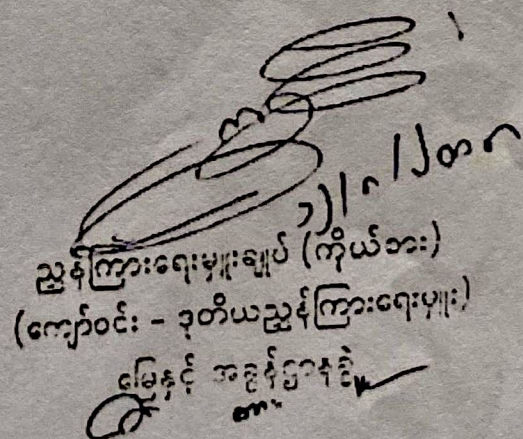 ညွှန်ကြားရေးမှူးချုပ် (ကိုယ်စား)
(ကျော်ဝင်း - ဒုတိယညွှန်ကြားရေးမှူး)
မြေနှင့် အခွန်ဌာနခွဲ